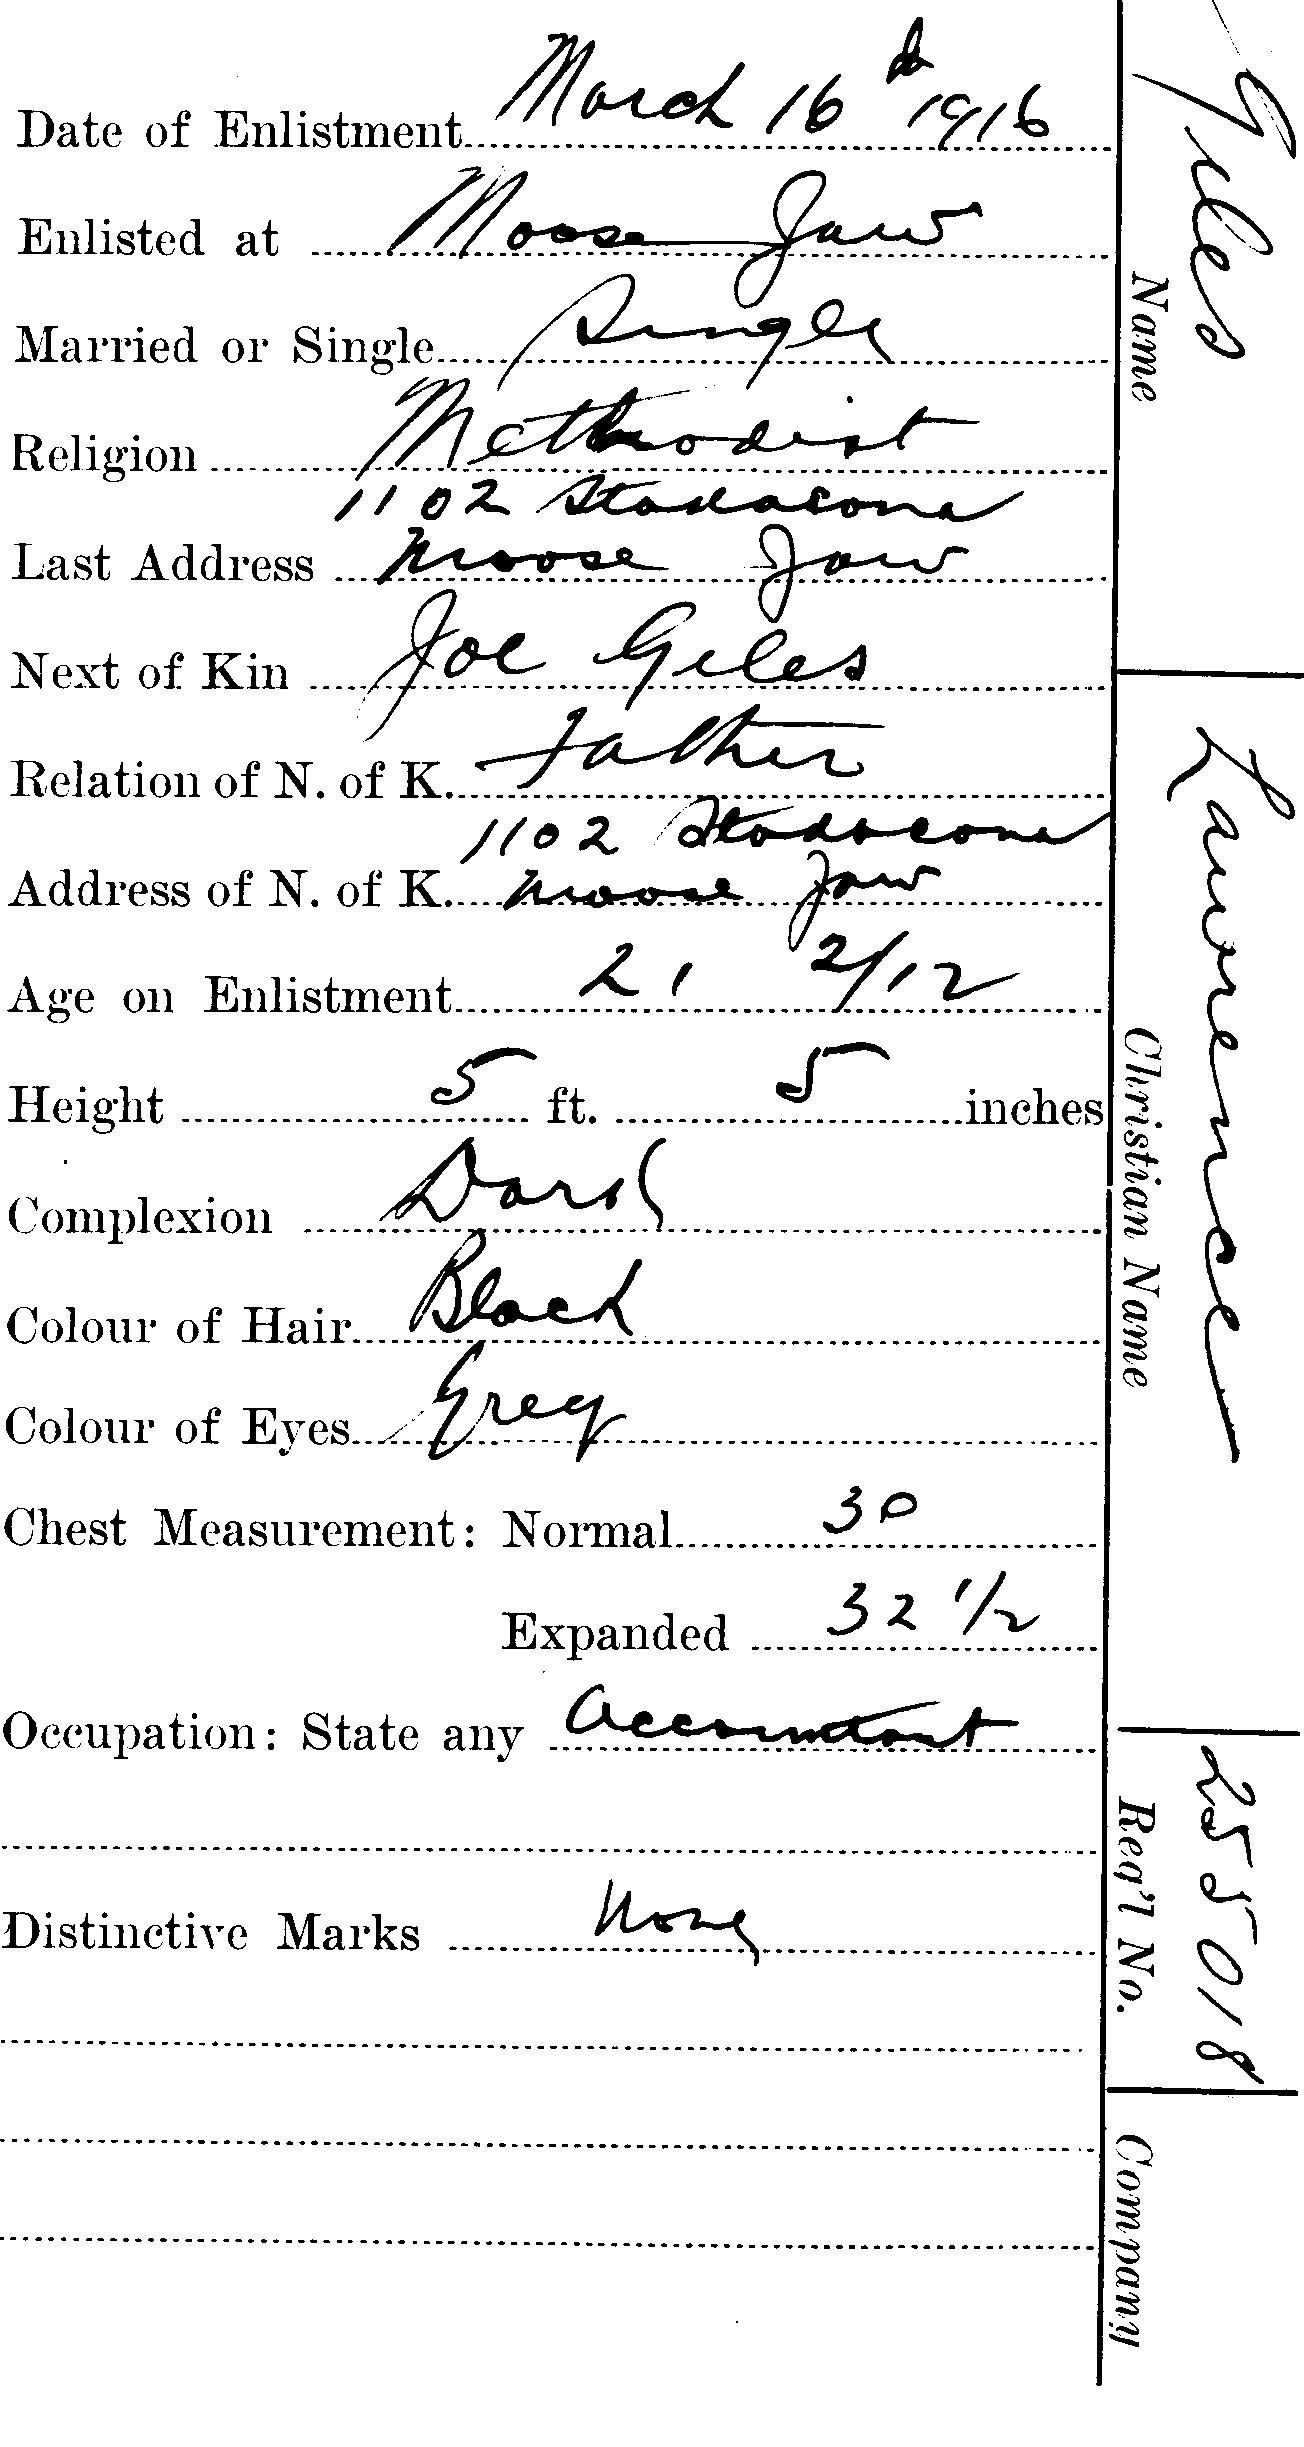 Date of Enlistment March 16th 1916
Enlisted at Moose Jaw
Married or Single Single
Religion Methodist
1102 Stadacona
Last Address Moose Jaw
Next of Kin Joe Giles
Relation of N. of K. Father
1102 Stadacona
Address of N. of K. Moose Jaw
Age on Enlistment 21 2/12
Height 5 ft. 5 inches
Complexion Dark
Colour of Hair Black
Colour of Eyes Grey
Chest Measurement: Normal 30
Expanded 32 1/2
Occupation: State any Accountant
Distinctive Marks None
Giles
Name
Lawrence
Christian Name
255018
Reg'l No.
Company